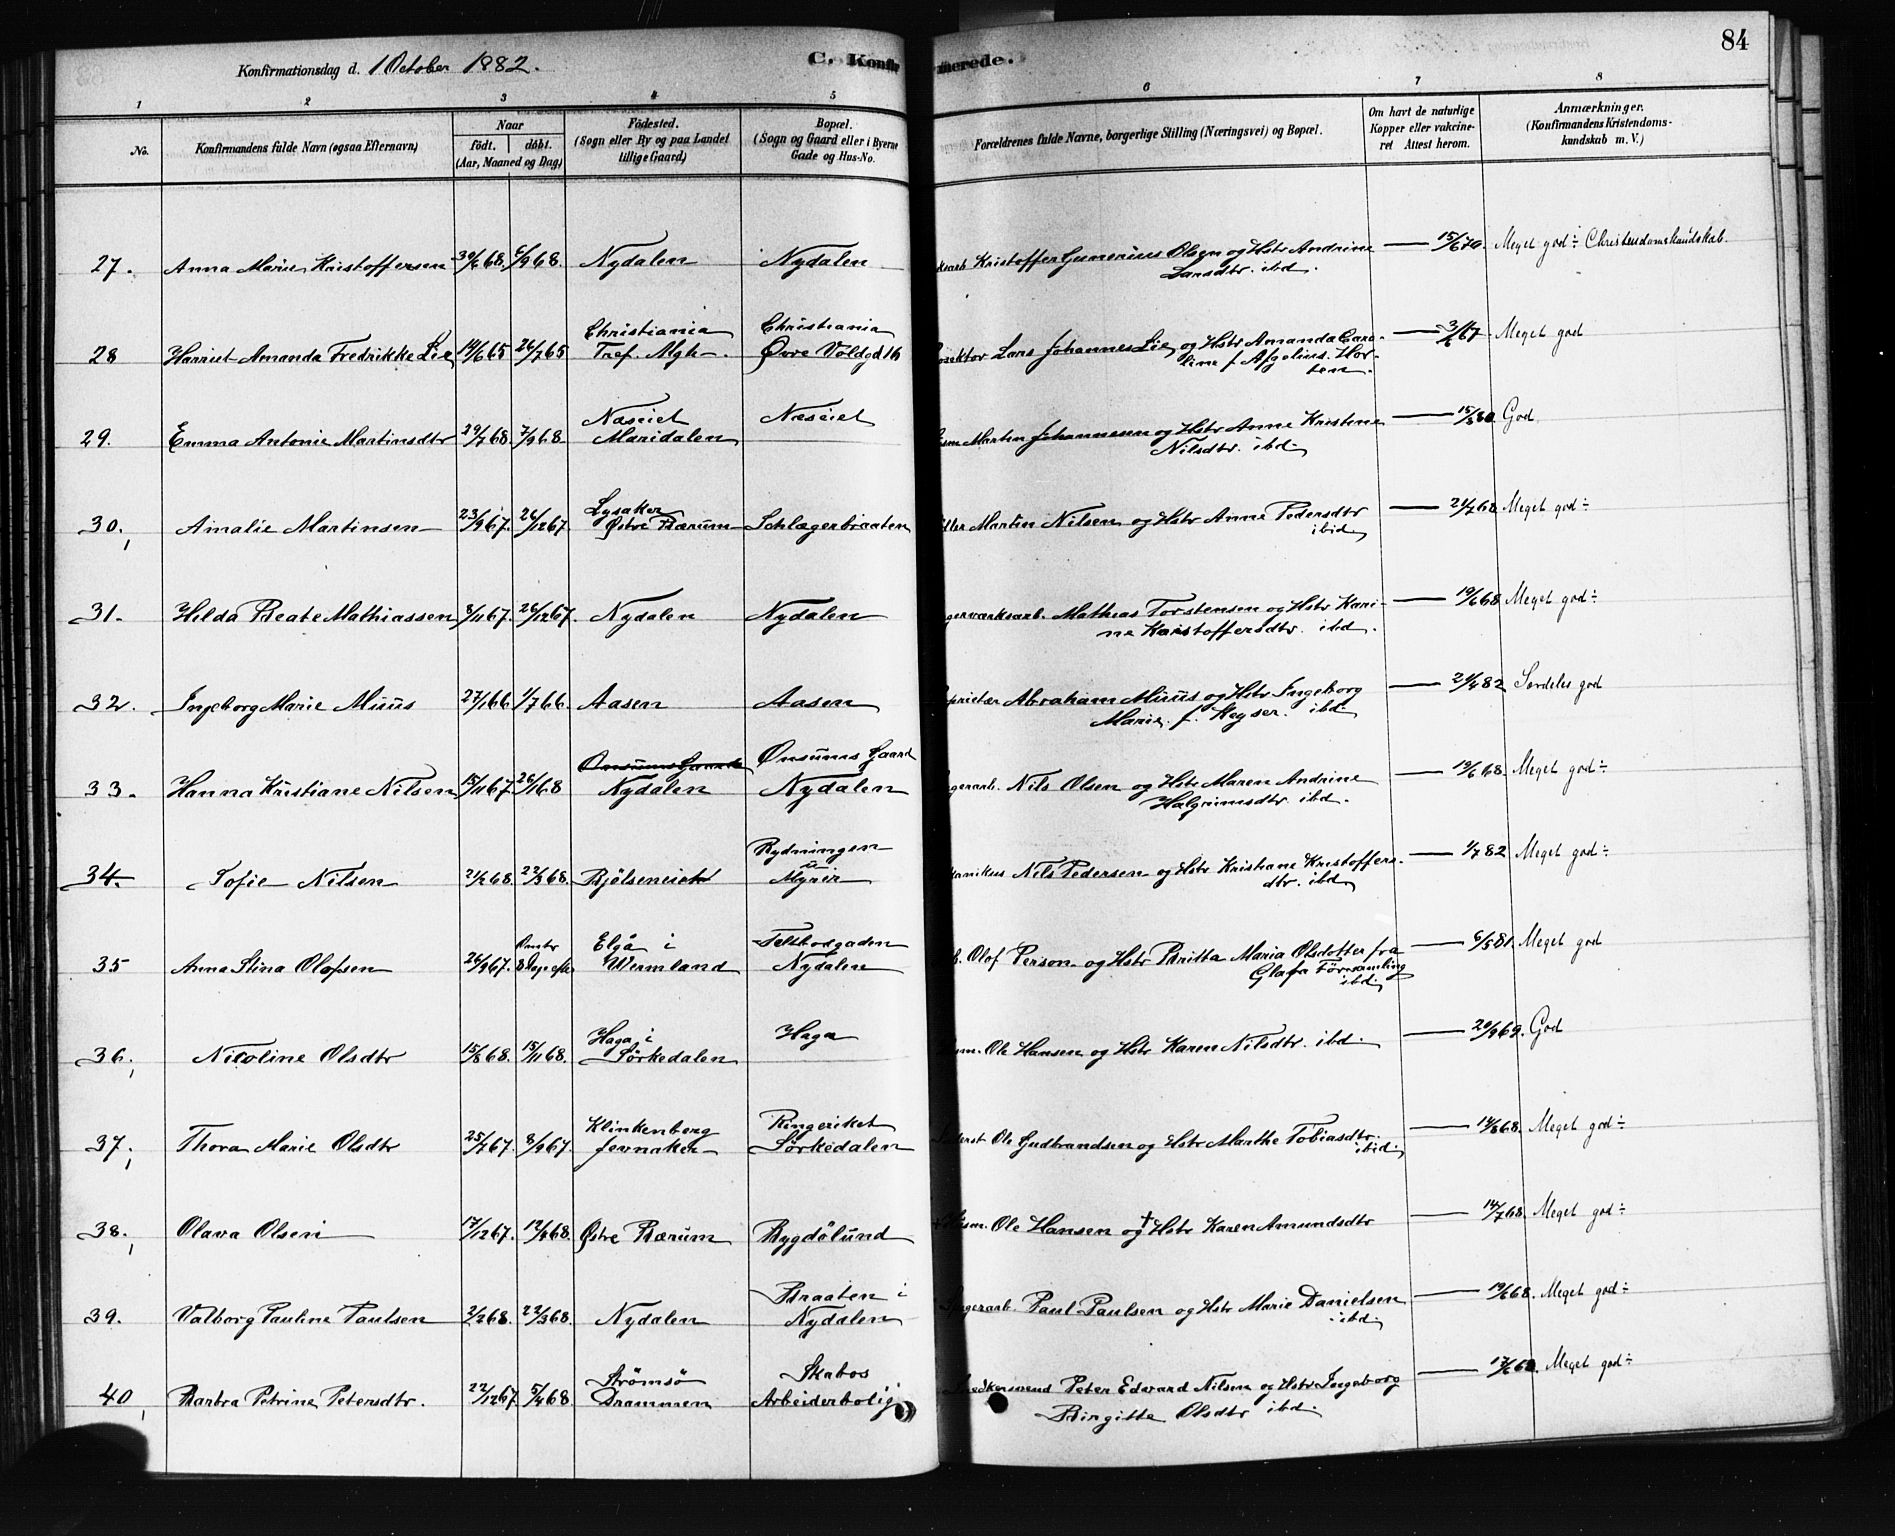 84
Konfirmationsdag d. 1 October 1882.
C. Konfirmerede.
1 2 3 4 5 6 7 8
No.
Konfirmandens fulde Navn (ogsaa Efternavn)
Naar
födt. döbt.
(Aar, Maaned og Dag)
Födested.
(Sogn eller By og paa Landet
tillige Gaard)
Bopæl.
(Sogn og Gaard eller i Byerne
Gade og Hus-No.
Forældrenes fulde Navne, borgerlige Stilling (Næringsvei) og Bopæl.
Om havt de naturlige
Kopper eller vakcine-
ret Attest herom.
Anmærkninger.
(Konfirmandens Kristendoms-
kundskab m. V.)
27. Anna Marie Kristoffersen 30/6 68. 6/9 68. Nydalen Nydalen Kristoffer Gunerius Olsen og Hstr Andrine — 15/6 70. Meget god ÷ Christendomskundskab.
Larsdtr. ibd.
Christiania Christiania
28 Harriet Amanda Fredrikke Lie 14/6 65 26/7 65 Tref. Mgh. Øvre Voldgd 16 Lars Johannes Lie og Hstr Amanda Caro- — 3/6 67. Meget god
line f. Afzelius. Hor-
ten.
Næseiet Næseiet
29. Emma Antonie Martinsdtr 29/7 68. 7/9 68. Maridalen Martin Johannesen og Hstr Anne Kristine — 15/5 80. God
Nilsdtr. ibd.
Lysaker
30. Amalie Martinsen 23/9 67. 26/12 67. Østre Bærum Schlægerbraaten Martin Nilsen og Hstr Anne Pedersdtr — 21/7 68. Meget god ÷
ibid.
31. Hilda Beate Mathiassen 8/11 67. 26/12 67. Nydalen Nydalen Mathias Torstensen og Hstr Kari- — 19/6 68 Meget god ÷
ne Kristoffersdtr. ibd.
32. Ingeborg Marie Muus 27/1 66 1/7 66. Aasen Aasen Abraham Muus og Hstr Ingeborg — 21/4 82. Særdeles god
Marie f. Keyser. ibd.
Ønsums Gaard Ønsums Gaard
33. Hanna Kristiane Nilsen 15/11 67. 26/1 68 Nydalen Nydalen Nils Olsen og Hstr Maren Andrine — 19/6 68. Meget god ÷
Halgrimsdtr. ibd.
Rydningen
34. Sofie Nilsen 21/2 68. 22/3 68. Bjölseneiet Myrer Nils Pedersen og Hstr Kristiane Kristoffers- — 1/7 82. Meget god ÷
dtr. ibd.
Elgå i Teltborgaden
35 Anna Stina Olofsen 26/9 67. Wermland Nydalen Olof Person og Hstr Britta Maria Olsdotter fra — 6/5 81. Meget god
Glafa Församling
ibd.
Haga i Haga
36. Nicoline Olsdtr 15/8 68. 15/11 68. Sörkedalen Ole Hansen og Hstr Karen Nilsdtr. ibd. — 20/9 69. God
Klinkenberg Ringeriket
37. Thora Marie Olsdtr 25/7 67. 8/9 67. Jevnaker Sörkedalen Ole Gudbrandsen og Hstr Marthe Tobiasdtr. — 14/8 68. Meget god ÷
ibid.
38. Olava Olsen 17/12 67. Østre Bærum Bygdölund Ole Hansen og † Hstr Karen Amundsdtr — 14/7 68. Meget god ÷
Braaten i
39. Valborg Pauline Paulsen 2/2 68. 22/3 68. Nydalen Nydalen Paul Paulsen og Hstr Marie Danielsen — 19/6 68. Meget god ÷
ibd.
Strömsö Skabos
40 Barbra Petrine Petersdtr. 22/12 67. 5/4 68. Drammen Arbeiderbolig Snedkersvend Peter Edvard Nilsen og Hstr Ingeborg — Meget god ÷
Birgitte Olsdtr ibd.